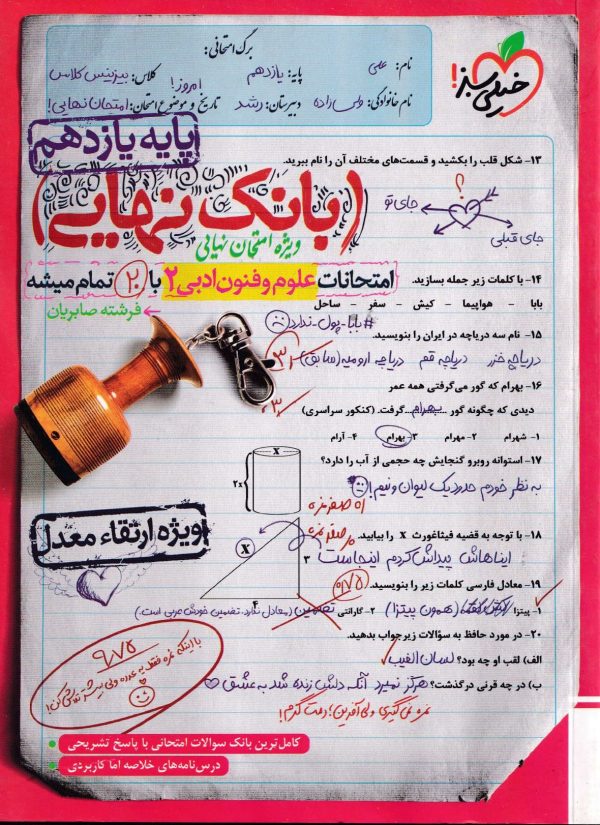 خیلی سبز!
برگ امتحانی:
نام: علی
پایه: یازدهم
کلاس: بیزینس کلاس
نام خانوادگی: ولی زاده
دبیرستان: رشد
تاریخ و موضوع امتحان: امروز! امتحان نهایی!
پایه یازدهم
۱۳- شکل قلب را بکشید و قسمت‌های مختلف آن را نام ببرید.
؟
جای تو
جای قبلی
(بانک نهایی)
ویژه امتحان نهایی
امتحانات علوم و فنون ادبی ۲ با ۲۰ تمام میشه
فرشته صابریان
۱۴- با کلمات زیر جمله بسازید.
بابا - هواپیما - کیش - سفر - ساحل
#بابا_پول_ندارد
۱۵- نام سه دریاچه در ایران را بنویسید.
دریاچه خزر دریاچه قم دریاچه ارومیه (سابق)
۳
۱۶- بهرام که گور می‌گرفتی همه عمر
دیدی که چگونه گور بهرام گرفت. (کنکور سراسری)
۳
۱- شهرام ۲- مهرام ۳- بهرام ۴- آرام
۱۷- استوانه روبرو گنجایش چه حجمی از آب را دارد؟
x
2x
به نظر خودم حدود یک لیوان و نیم!
ویژه ارتقاء معدل
۱۸- با توجه به قضیه فیثاغورث x را بیابید.
x
۳
۴
ایناهاش پیداش کردم اینجاست
۱۹- معادل فارسی کلمات زیر را بنویسید.
۰/۷۵
۱- پیتزا (همون پیتزا) ۲- گارانتی تضمین (معادل ندارد. تضمین خودش عربی است.)
۲۰- در مورد حافظ به سؤالات زیر جواب بدهید.
الف) لقب او چه بود؟ لسان الغیب
ب) در چه قرنی درگذشت؟ هرگز نمیرد آنکه دلش زنده شد به عشق
نمره نمی‌گیری ولی آفرین! دمت گرم!
۹/۷۵
با اینکه نمره فقط یه عدده ولی بیشتر تلاش کن!
کامل‌ترین بانک سوالات امتحانی با پاسخ تشریحی
درس‌نامه‌های خلاصه اما کاربردی